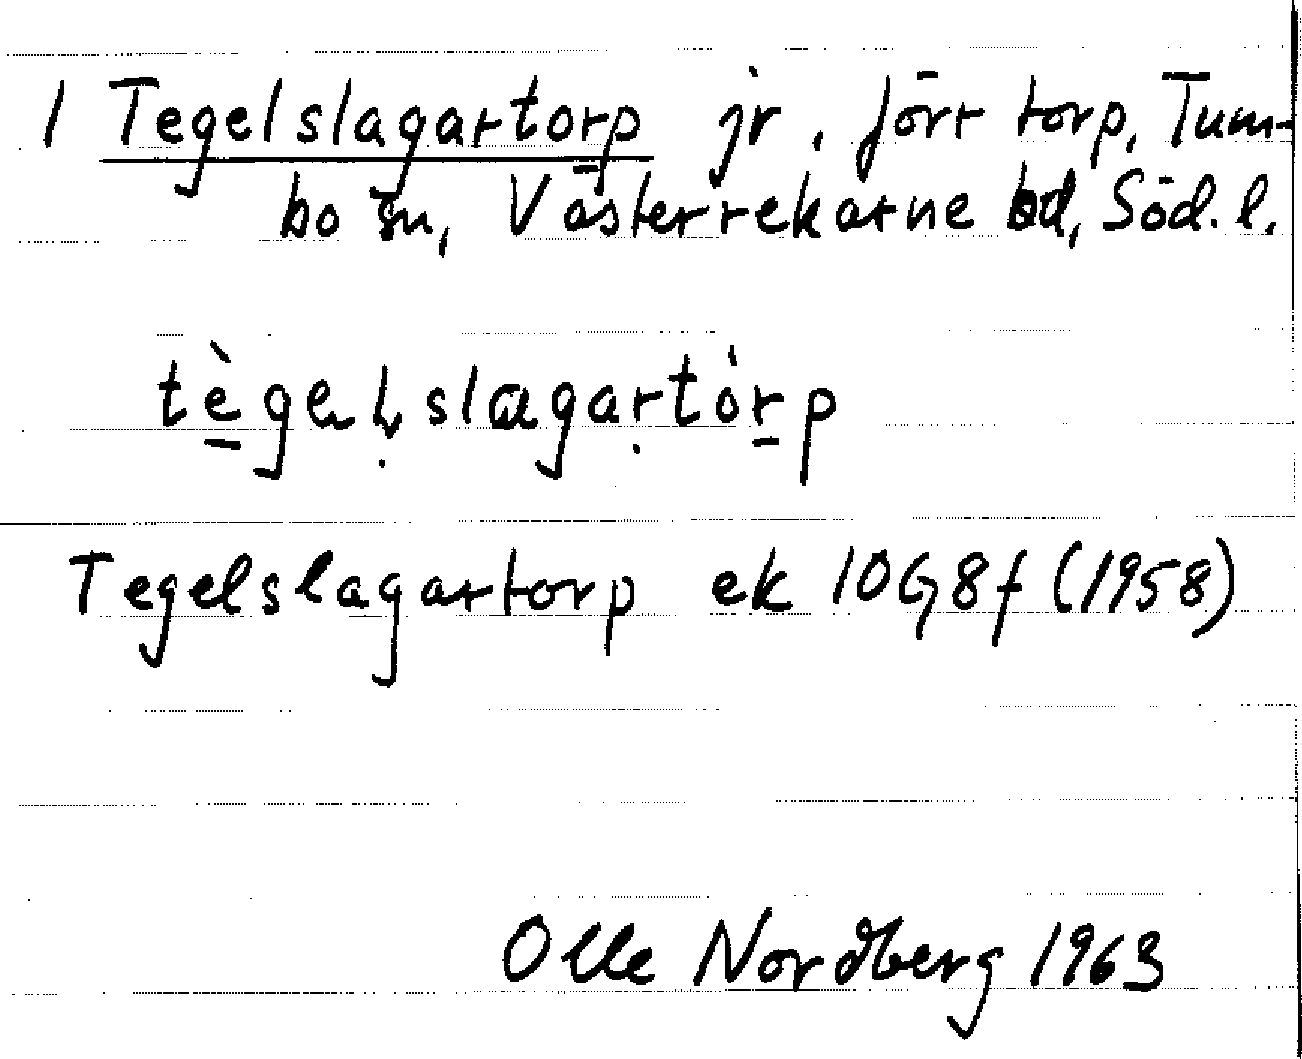 1 Tegelslagartorp jr, förr torp, Tum-
bo sn, Västerrekarne hd, Söd. l.
tègelslagartòrp
Tegelslagartorp ek 10G8f (1958)
Olle Nordberg 1963